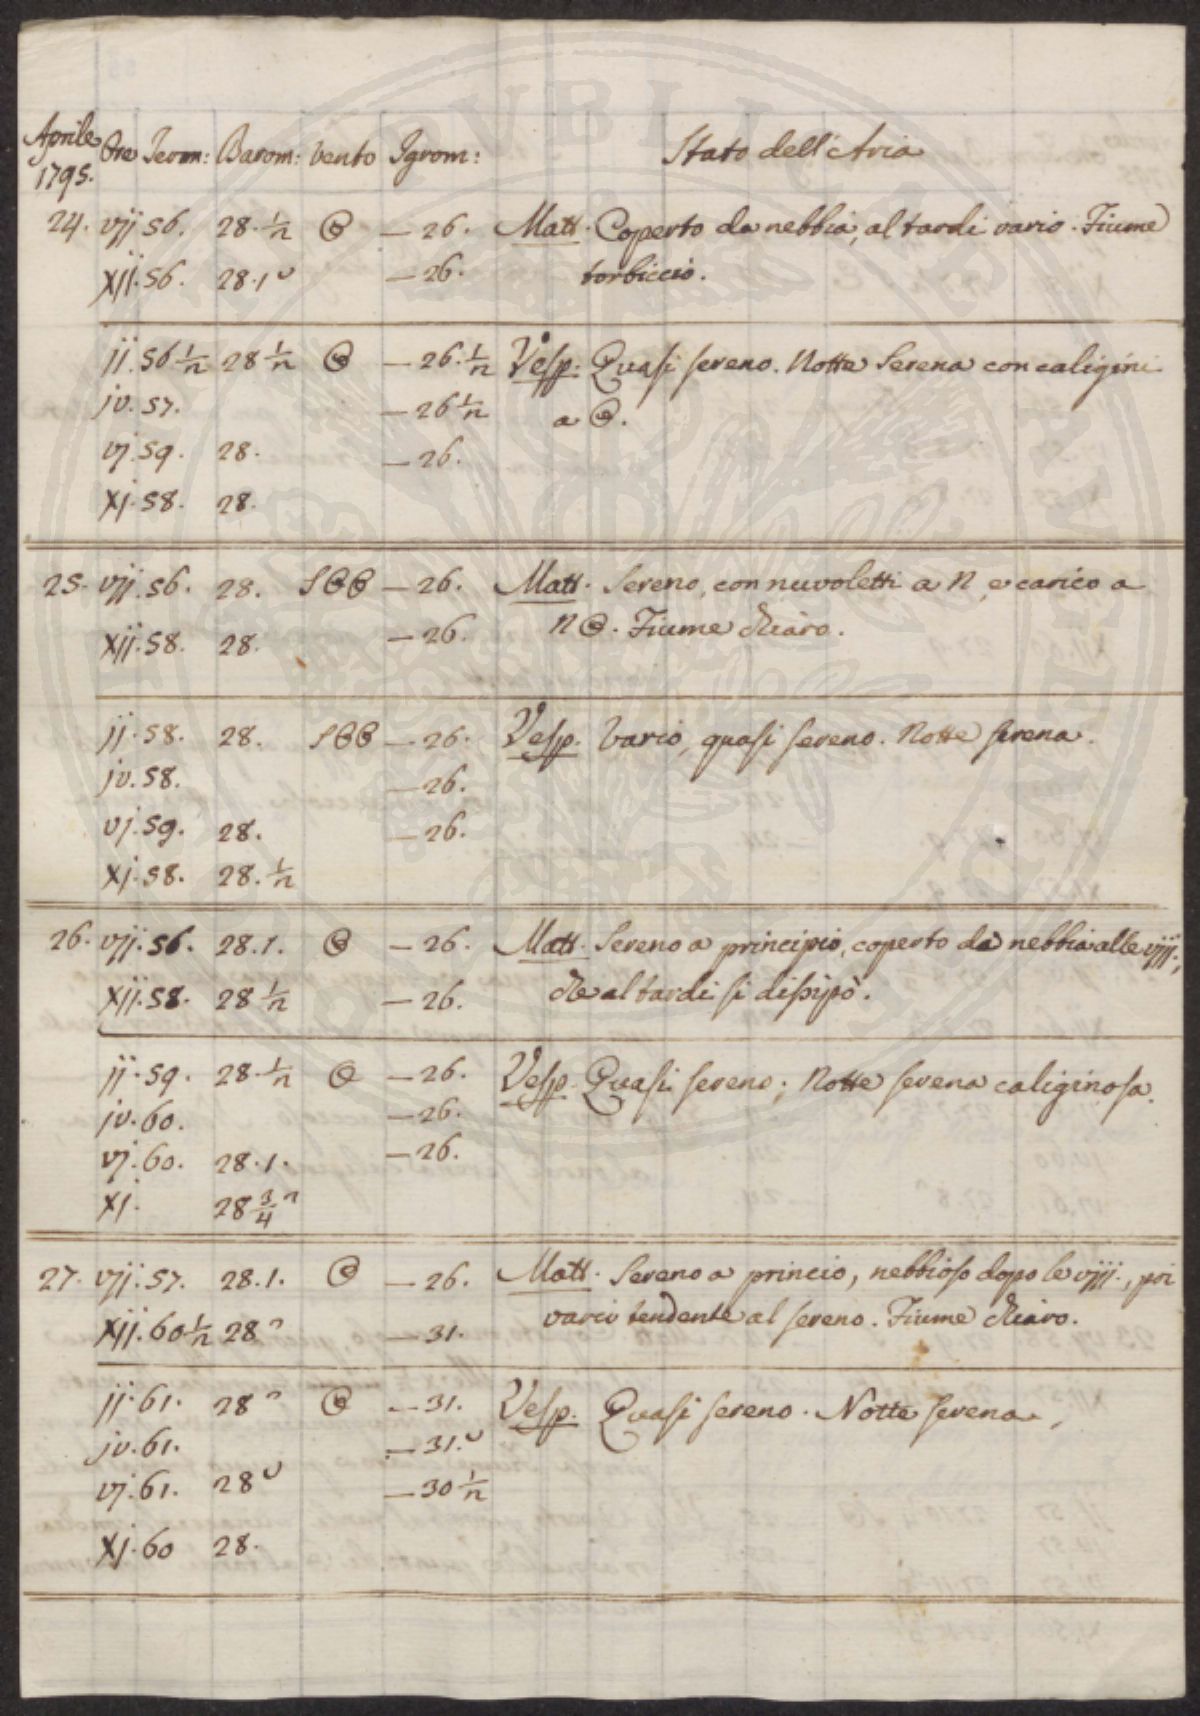 Aprile 1795. Ore Term: Barom: vento Igrom: Stato dell'Aria
24. vij 56. 28.½ O – 26. Matt. Coperto da nebbia, al tardi vario. Fiume
xij. 56. 28.1 – 26. torbiccio.
ij. 56½ 28½ O – 26.½ Vesp: Quasi sereno. Notte Serena con caligini
iv. 57. – 26½ a O.
vj. 59. 28. – 26.
xj. 58. 28.
25. vij. 56. 28. SOO – 26. Matt. Sereno, con nuvoletti a N, e carico a
xij. 58. 28. – 26. NO. Fiume chiaro.
ij. 58. 28. SOO – 26. Vesp. Vario, quasi sereno. Notte serena.
iv. 58. – 26.
vj. 59. 28. – 26.
xj. 58. 28.½
26. vij. 56. 28.1. O – 26. Matt. Sereno a principio, coperto da nebbia alle viij.,
xij. 58. 28½ – 26. che al tardi si dissipò.
ij. 59. 28.½ O – 26. Vesp. Quasi sereno; Notte serena caliginosa.
iv. 60. – 26.
vj. 60. 28.1. – 26.
xj. 28¾
27. vij. 57. 28.1. O – 26. Matt. Sereno a princio, nebbioso dopo le viij., poi
xij. 60½ 28 – 31. vario tendente al sereno. Fiume chiaro.
ij. 61. 28 O – 31. Vesp. Quasi sereno. Notte serena,
iv. 61. – 31.
vj. 61. 28 – 30½
xj. 60 28.